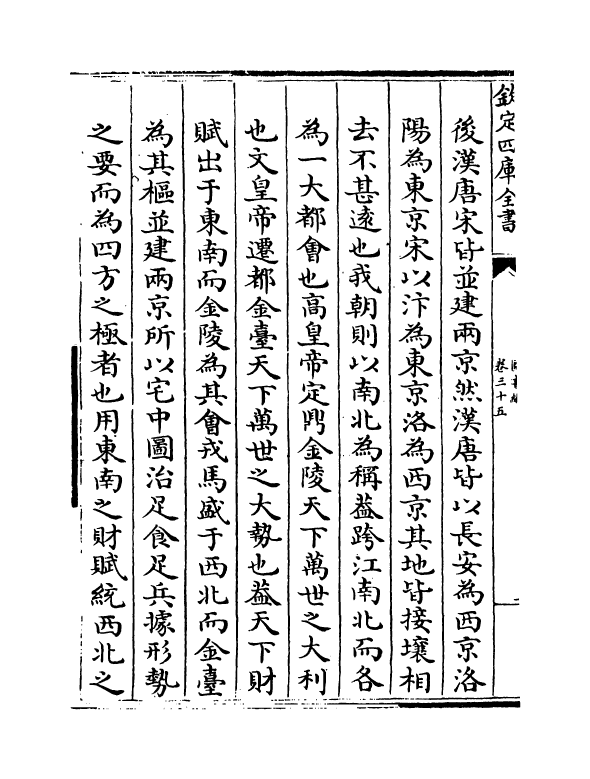 欽定四庫全書
卷三十五
後漢唐宋皆並建兩京然漢唐皆以長安為西京洛
陽為東京宋以汴為東京洛為西京其地皆接壤相
去不甚逺也我朝則以南北為稱葢跨江南北而各
為一大都會也高皇帝定鼎金陵天下萬世之大利
也文皇帝遷都金臺天下萬世之大勢也葢天下財
賦出于東南而金陵為其會戎馬盛于西北而金臺
為其樞並建兩京所以宅中圖治足食足兵據形勢
之要而為四方之極者也用東南之財賦統西北之